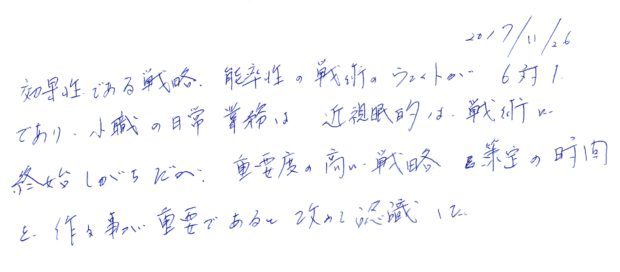 2017/11/26
効果性である戦略、能率性の戦術のウェイトが 6対1
であり、小職の日常業務は 近視眼的な、戦術に
終始しがちだが、重要度の高い戦略 策定の時間
を、作る事が重要であると改めて認識した。